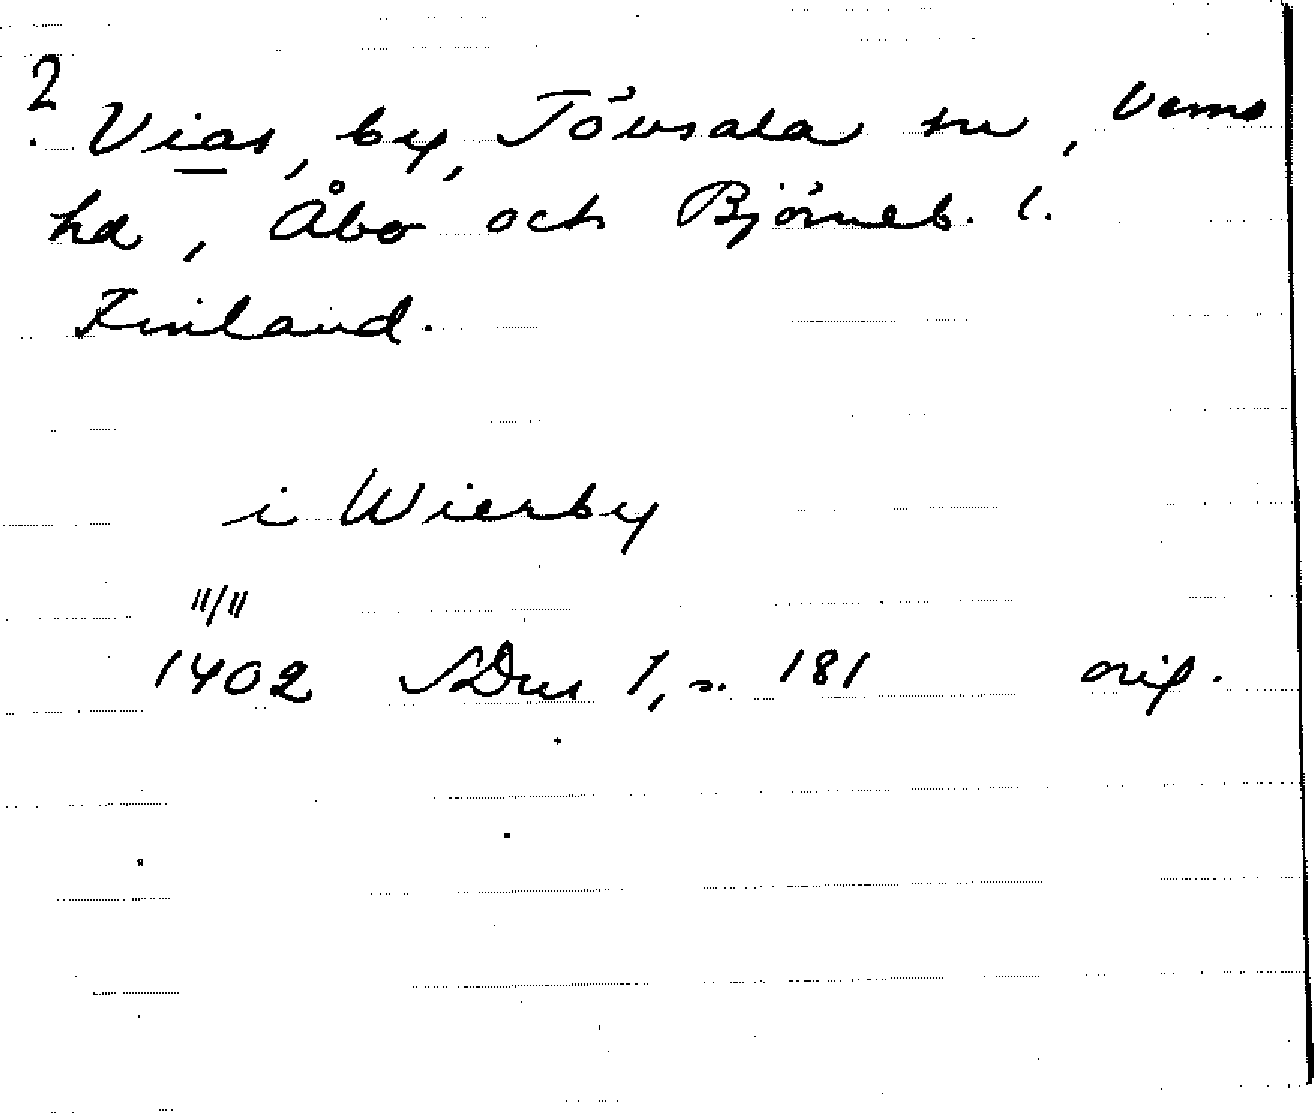 ? Vias, by, Tövsala sn, Vemo
hd, Åbo och Björneb. l.
Finland.
i Wierby
11/11
1402 SDns 1, s. 181 orig.